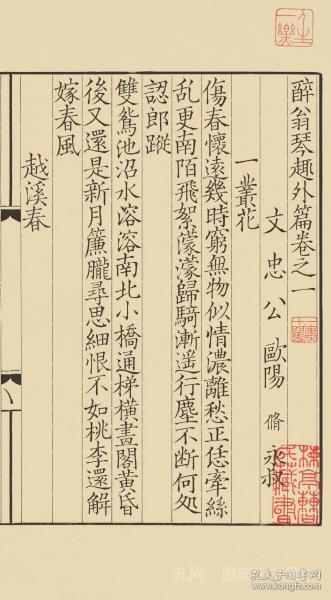 醉翁琴趣外篇卷之一
文忠公歐陽脩永叔
一叢花
傷春懷遠幾時窮無物似情濃離愁正恁牽絲
乱更南陌飛絮濛濛歸騎漸遥行塵不断何処
認郎蹤
雙鴛池沼水溶溶南北小橋通梯橫畫閣黄昏
後又還是新月簾朧尋思細恨不如桃李還解
嫁春風
越溪春
孔网